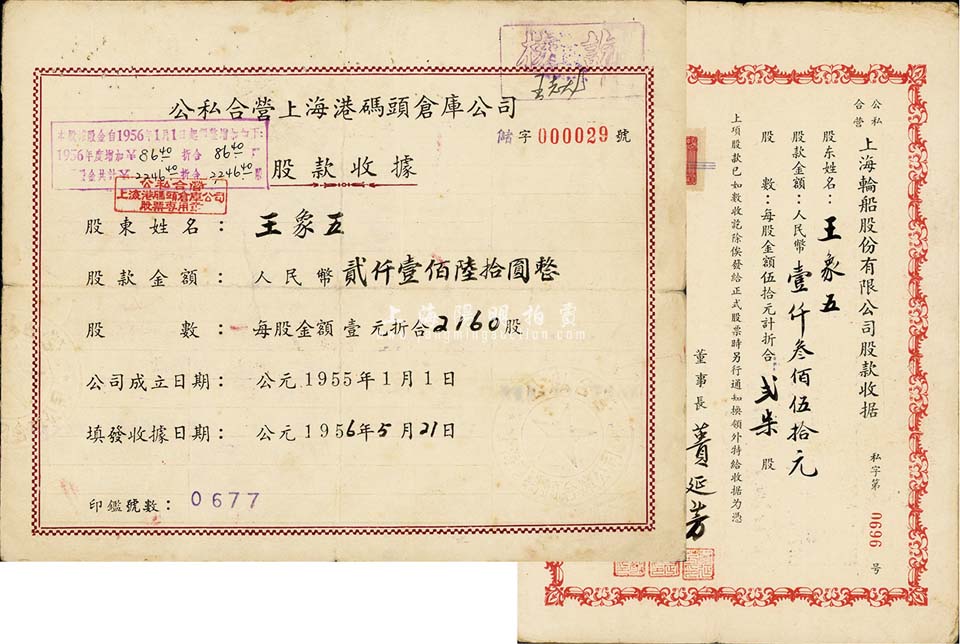 公私合營上海港碼頭倉庫公司
儲字 000029 號
股款收據
1956年度增加¥86.40 折合 86.40
2246.40 折合 2246.40 股
公私合營
上海港碼頭倉庫公司
股票專用章
股東姓名：王象五
股款金額：人民幣貳仟壹佰陸拾圓整
股數：每股金額壹元折合2160股
公司成立日期：公元1955年1月1日
填發收據日期：公元1956年5月21日
印鑑號數：0677
上海陽明拍賣
公私合营 上海輪船股份有限公司股款收据
私字第 0696 号
股东姓名：王象五
股款金額：人民幣壹仟叁佰伍拾元
股數：每股金額伍拾元計折合弍柒股
上項股款已如數收訖除俟發給正式股票時另行通知換領外特給收据为憑
董事長